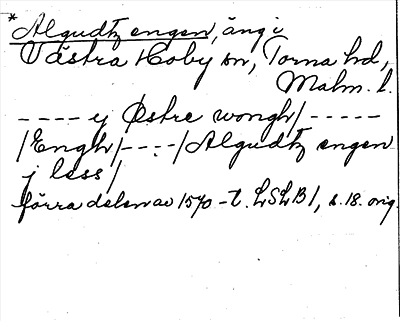 *Algudtz engen, äng i
Västra Hoby sn, Torna hd,
Malm. l.
---- ej Østre wongh/-----
/Engh/----/Algudtz engen
j less/
förra delen av 1570-t. LSLB 1, s. 18. orig.